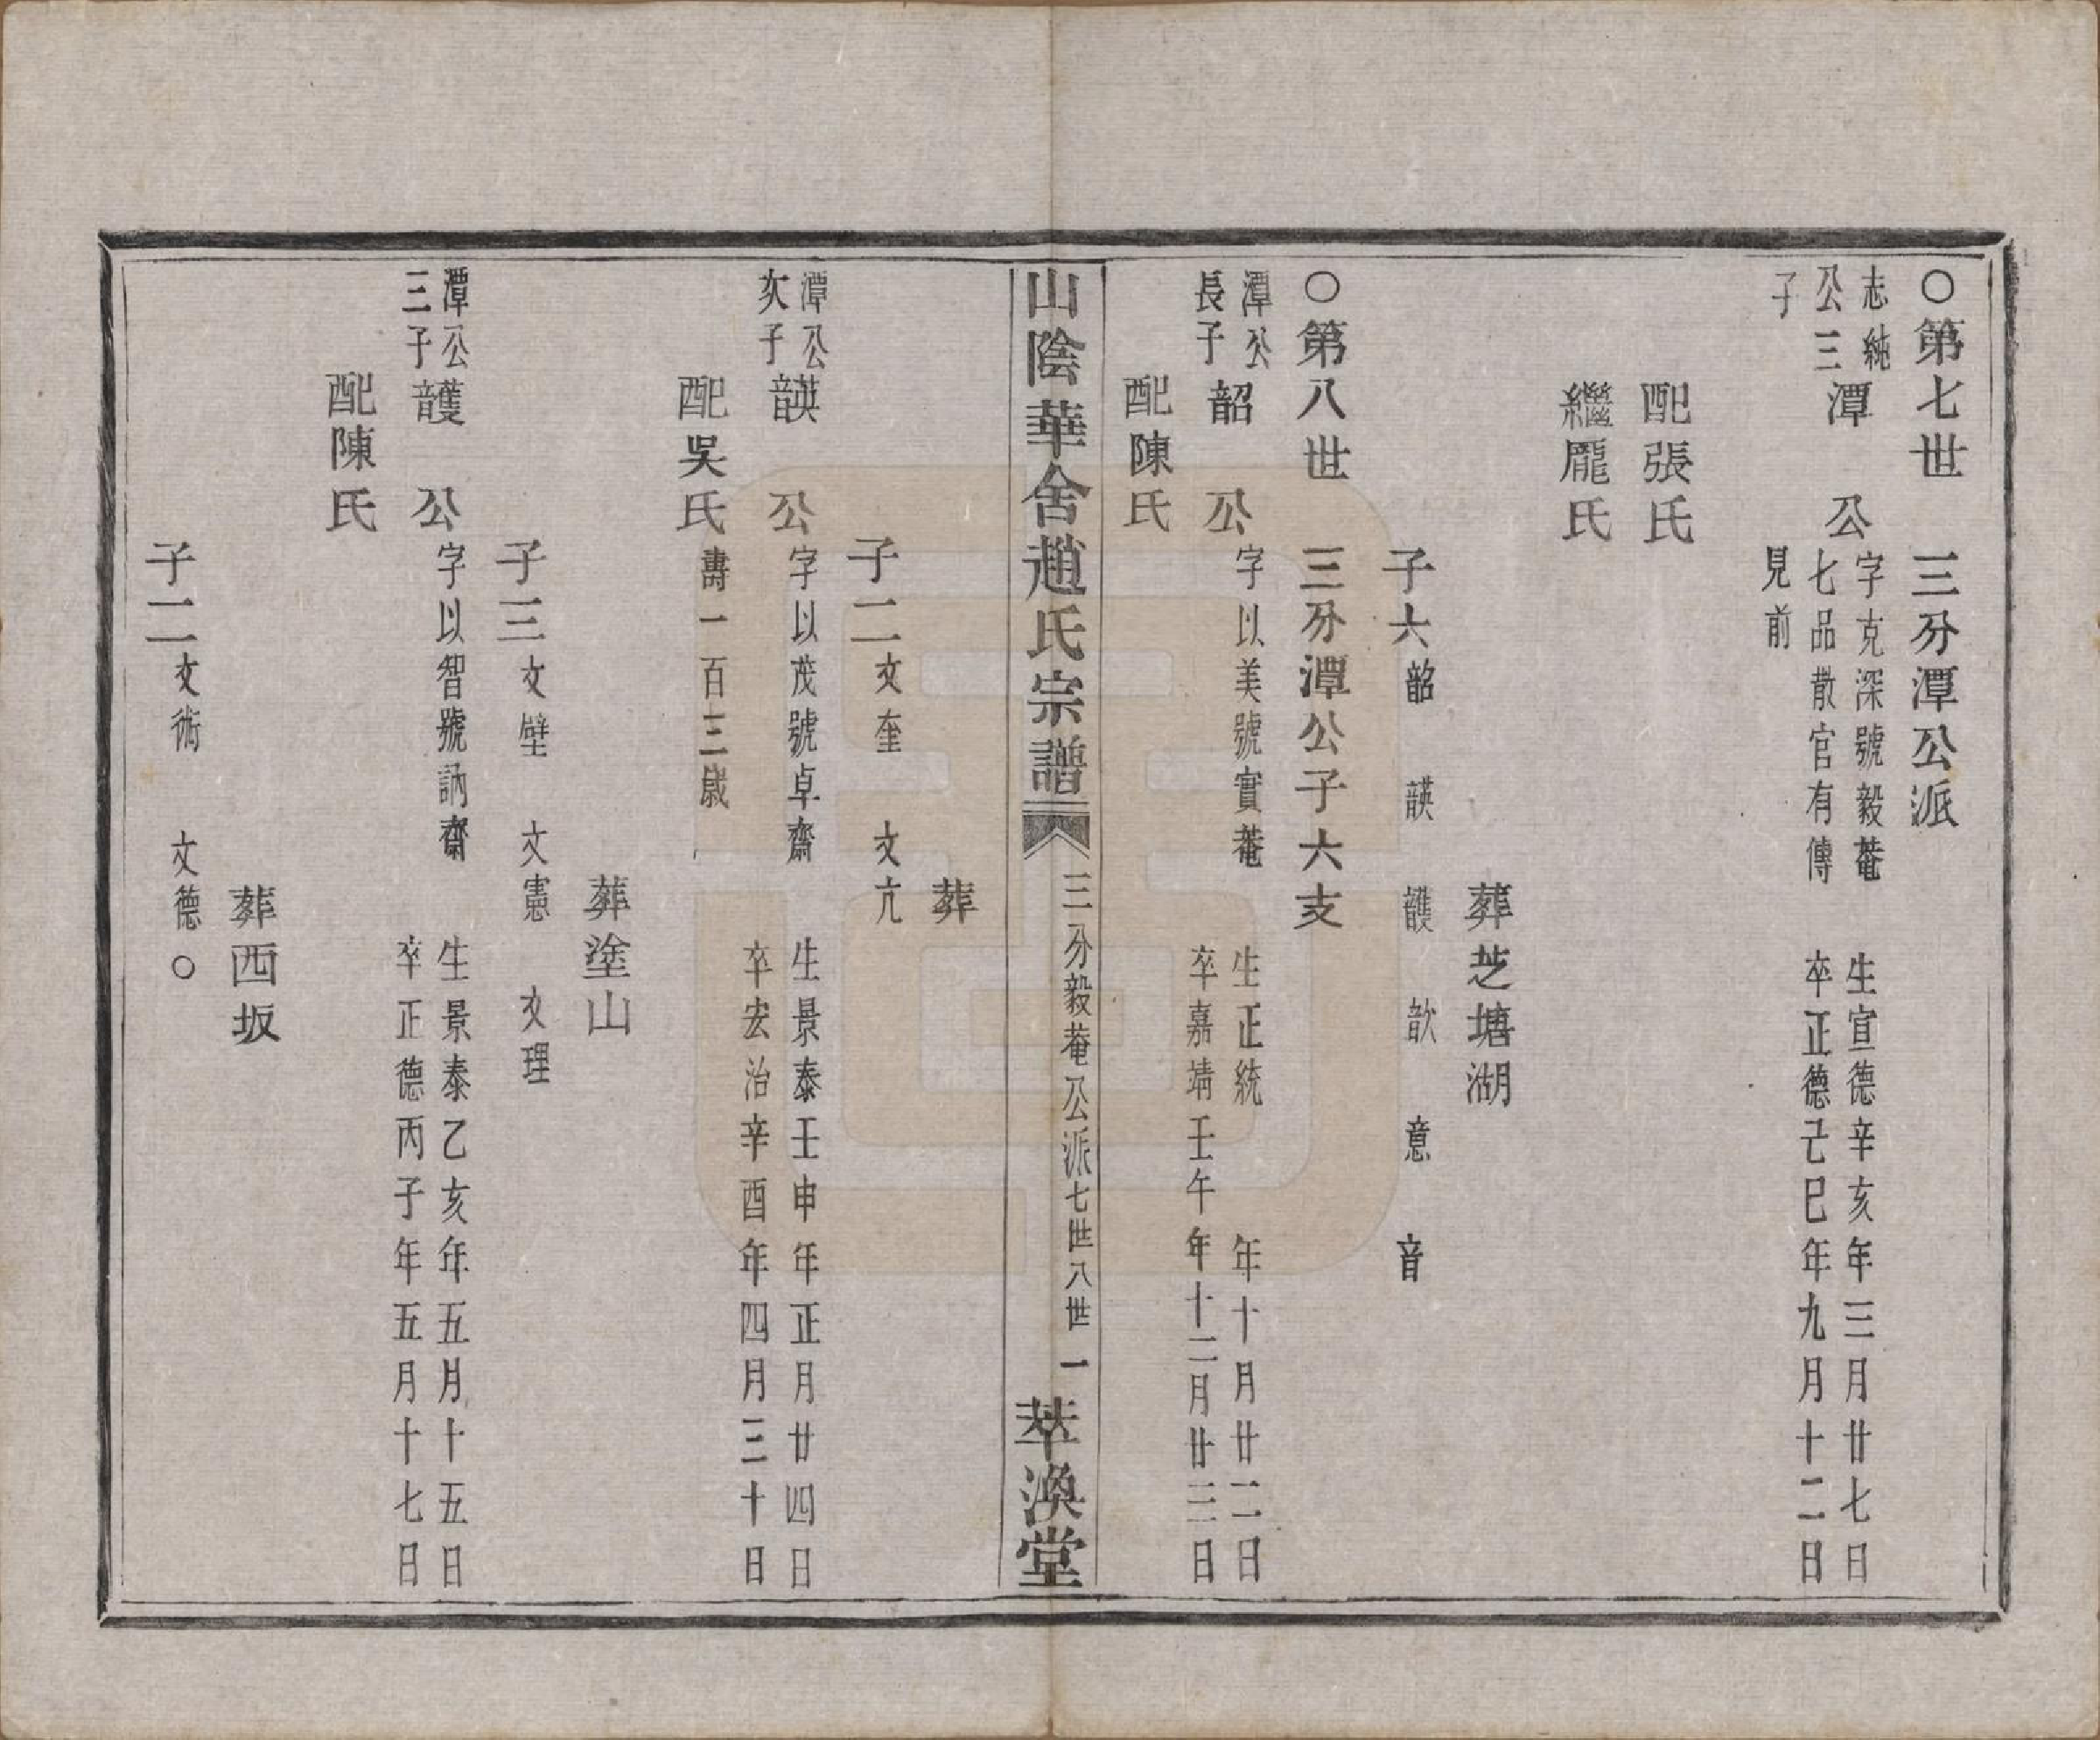 ○第七世　三分潭公派
志純
公三
子
潭　公
字克深號毅菴
七品散官有傳
見前
生宣德辛亥年三月廿七日
卒正德己巳年九月十二日
配張氏
繼龎氏
葬芝塘湖
子六韶　韺　頀　歆　意　音
○第八世　三分潭公子六支
潭公
長子
韶　公
字以美號實菴
生正統　年十月廿二日
卒嘉靖壬午年十二月廿三日
配陳氏
山陰華舍趙氏宗譜
三分毅菴公派七世八世　一
萃渙堂
葬
子二文奎　文亢
潭公
次子
韺　公
字以茂號卓齋
生景泰壬申年正月廿四日
卒宏治辛酉年四月三十日
配吳氏
壽一百三歲
葬塗山
子三文壁　文憲　文理
潭公
三子
頀　公
字以智號訥齋
生景泰乙亥年五月十五日
卒正德丙子年五月十七日
配陳氏
葬西坂
子二文術　文德○